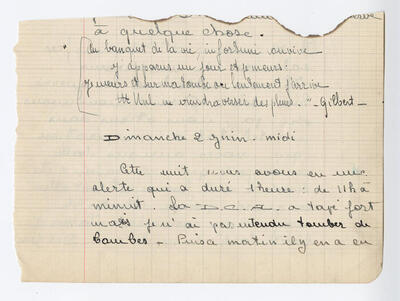 à quelque chose.
"Au banquet de la vie, infortuné convive
J'y apparus un jour et je meurs:
Je meurs et sur ma tombe où lentement j'arrive
Nul ne viendra verser des pleurs." - Gilbert -
Dimanche 2 Juin. midi
Cette nuit nous avons eu une
alerte qui a duré 1 heure: de 11h à
minuit. La D.C.A. a tapé fort
mais je n'ai pas entendu tomber de
bombes - Puis a matin il y en a eu